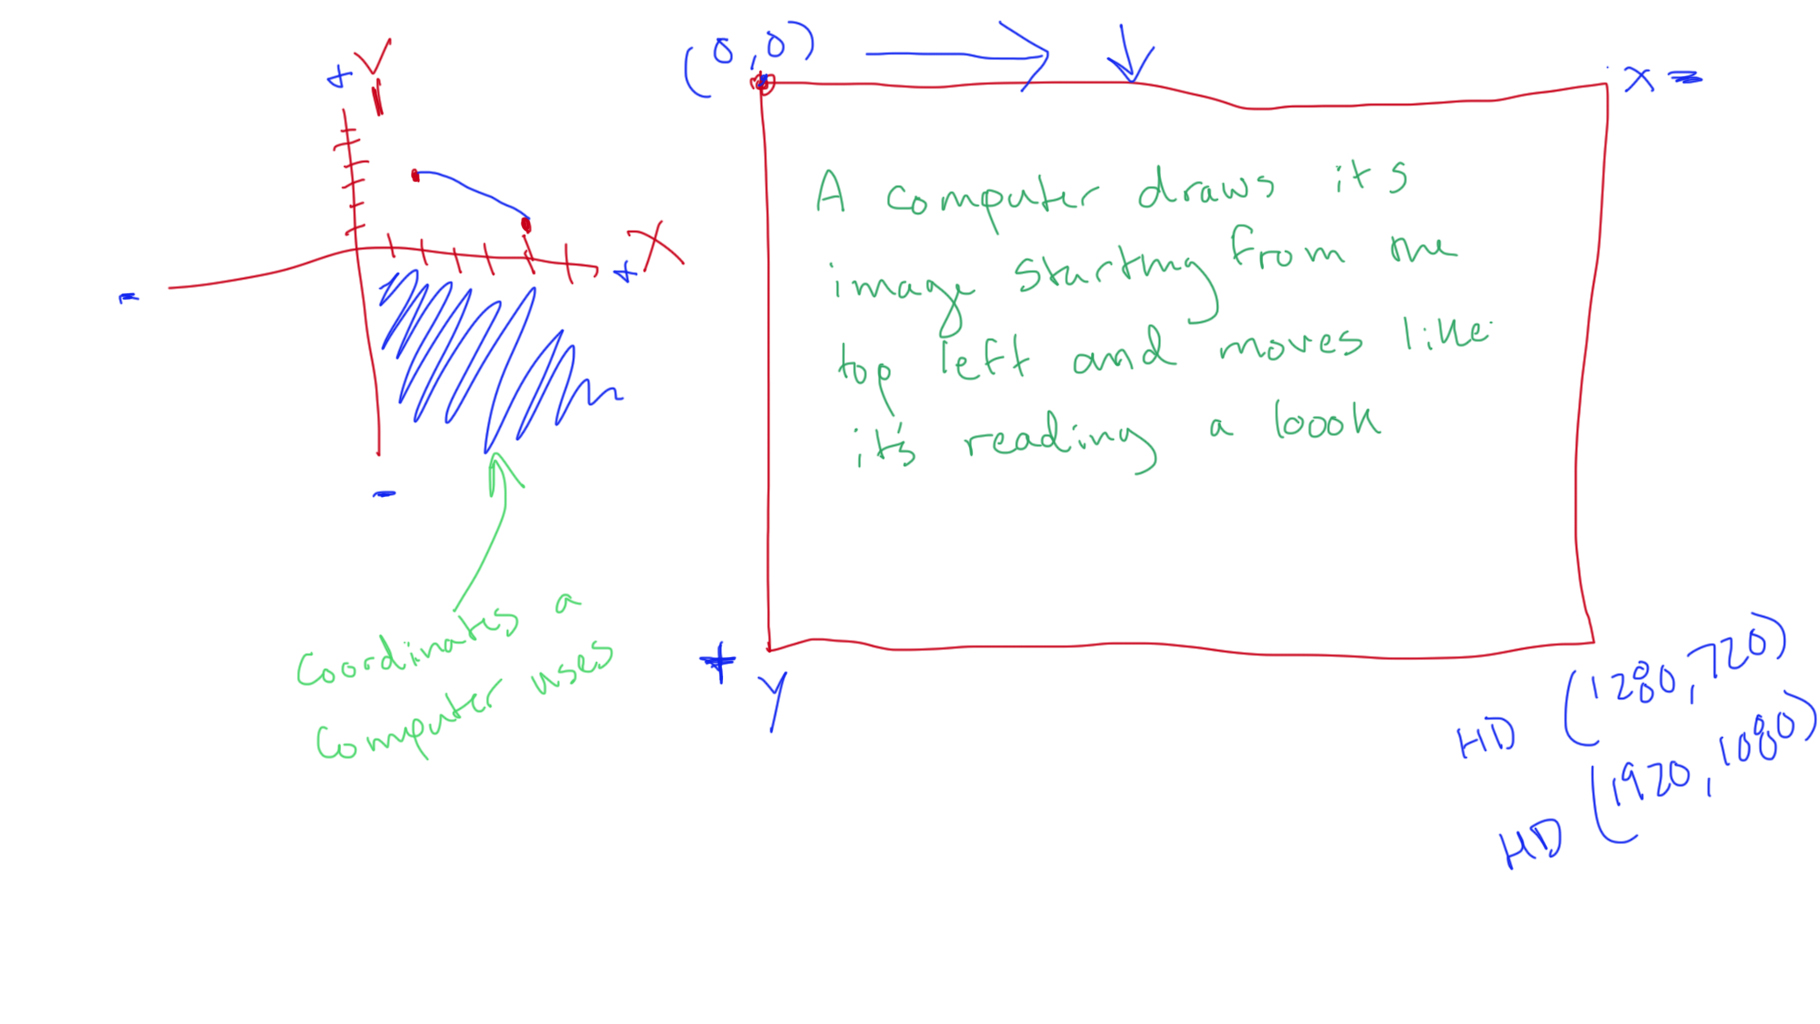 + Y
+ X
-
-
Coordinates a
Computer uses
(0,0)
X =
A computer draws its
image starting from the
top left and moves like
it's reading a book
+ Y
HD (1280,720)
HD (1920,1080)